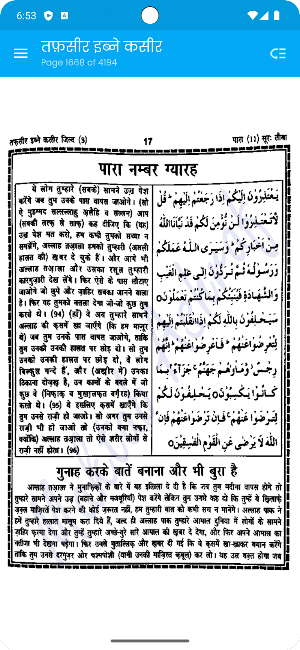 6:53
तफ़सीर इब्ने कसीर
Page 1668 of 4194
तफ़सीर इब्ने कसीर जिल्द (3)
17
पारा (11) सूरः तौबा
पारा नम्बर ग्यारह
ये लोग तुम्हारे (सबके) सामने उज़्र पेश
करेंगे जब तुम उनके पास वापस जाओगे। (सो
ऐ मुहम्मद सल्लल्लाहु अलैहि व सल्लम) आप
(सबकी तरफ़ से साफ़) कह दीजिए कि (यह)
उज़्र पेश मत करो, हम कभी तुमको सच्चा न
समझेंगे, अल्लाह तआ़ला हमको तुम्हारी (असली
हालत की) ख़बर दे चुके हैं। और आगे भी
अल्लाह तआ़ला और उसका रसूल तुम्हारी
कारगुज़ारी देख लेंगे। फिर ऐसे के पास लौटाए
जाओगे जो छुपे और ज़ाहिर सबका जानने वाला
है। फिर वह तुमको बतला देगा जो-जो कुछ तुम
करते थे। (94) (हाँ) वे अब तुम्हारे सामने
अल्लाह की क़समें खा जाएँगे (कि हम माज़ूर
थे) जब तुम उनके पास वापस जाओगे, ताकि
तुम उनको उनकी हालत पर छोड़ दो। सो तुम
उनको उनकी हालत पर छोड़ दो, वे लोग
बिल्कुल गन्दे हैं, और (आख़िर में) उनका
ठिकाना दोज़ख़ है, उन कामों के बदले में जो
कुछ वे (निफ़ाक़ व मुख़ालफ़त वग़ैरह) किया
करते थे। (95) ये इसलिए क़समें खाएँगे कि
तुम उनसे राज़ी हो जाओ। सो अगर तुम उनसे
राज़ी भी हो जाओ तो (उनको क्या नफ़ा,
क्योंकि) अल्लाह तआ़ला तो ऐसे शरीर लोगों से
राज़ी नहीं होता। (96)
يَعْتَذِرُوْنَ اِلَيْكُمْ اِذَا رَجَعْتُمْ اِلَيْهِمْ ؕ قُلْ
لَّا تَعْتَذِرُوْا لَنْ نُّؤْمِنَ لَكُمْ قَدْ نَبَّاَنَا اللّٰهُ
مِنْ اَخْبَارِكُمْ ؕ وَ سَيَرَى اللّٰهُ عَمَلَكُمْ
وَ رَسُوْلُهٗ ثُمَّ تُرَدُّوْنَ اِلٰى عٰلِمِ الْغَيْبِ
وَ الشَّهَادَةِ فَيُنَبِّئُكُمْ بِمَا كُنْتُمْ تَعْمَلُوْنَ
سَيَحْلِفُوْنَ بِاللّٰهِ لَكُمْ اِذَا انْقَلَبْتُمْ اِلَيْهِمْ
لِتُعْرِضُوْا عَنْهُمْ ؕ فَاَعْرِضُوْا عَنْهُمْ ؕ اِنَّهُمْ
رِجْسٌ ؗ وَّ مَاْوٰىهُمْ جَهَنَّمُ ۚ جَزَآءًۢ بِمَا
كَانُوْا يَكْسِبُوْنَ يَحْلِفُوْنَ لَكُمْ
لِتَرْضَوْا عَنْهُمْ ۚ فَاِنْ تَرْضَوْا عَنْهُمْ فَاِنَّ
اللّٰهَ لَا يَرْضٰى عَنِ الْقَوْمِ الْفٰسِقِيْنَ
गुनाह करके बातें बनाना और भी बुरा है
अल्लाह तआ़ला ने मुनाफ़िक़ों के बारे में यह इत्तिला दे दी है कि जब तुम मदीना वापस होगे तो
तुम्हारे सामने अपने उज़्र (बहाने और मजबूरियाँ) पेश करेंगे लेकिन तुम उनसे कह दो कि तुम्हें ये ख़िलाफ़े
उज़्र माज़िरतें पेश करने की कोई ज़रूरत नहीं, हम तुम्हारी बात को कभी सच न मानेंगे। अल्लाह पाक ने
हमें तुम्हारे हालात मालूम करा दिये हैं, जल्द ही अल्लाह पाक तुम्हारे आमाल दुनिया में लोगों के सामने
ज़ाहिर फ़रमा देगा और तुम्हें तुम्हारे अच्छे-बुरे सारे आमाल की ख़बर दे देगा, और फिर अपने आमाल का
नतीजा भी देखना पड़ेगा। फिर उनके मुताल्लिक़ और ख़बर दी गई कि वे क़समें खा-खाकर बयान करेंगे
ताकि तुम उनसे दरगुज़र और चश्मपोशी (यानी उनकी माज़िरत क़ुबूल) कर लो। यह उस वक़्त होगा जब